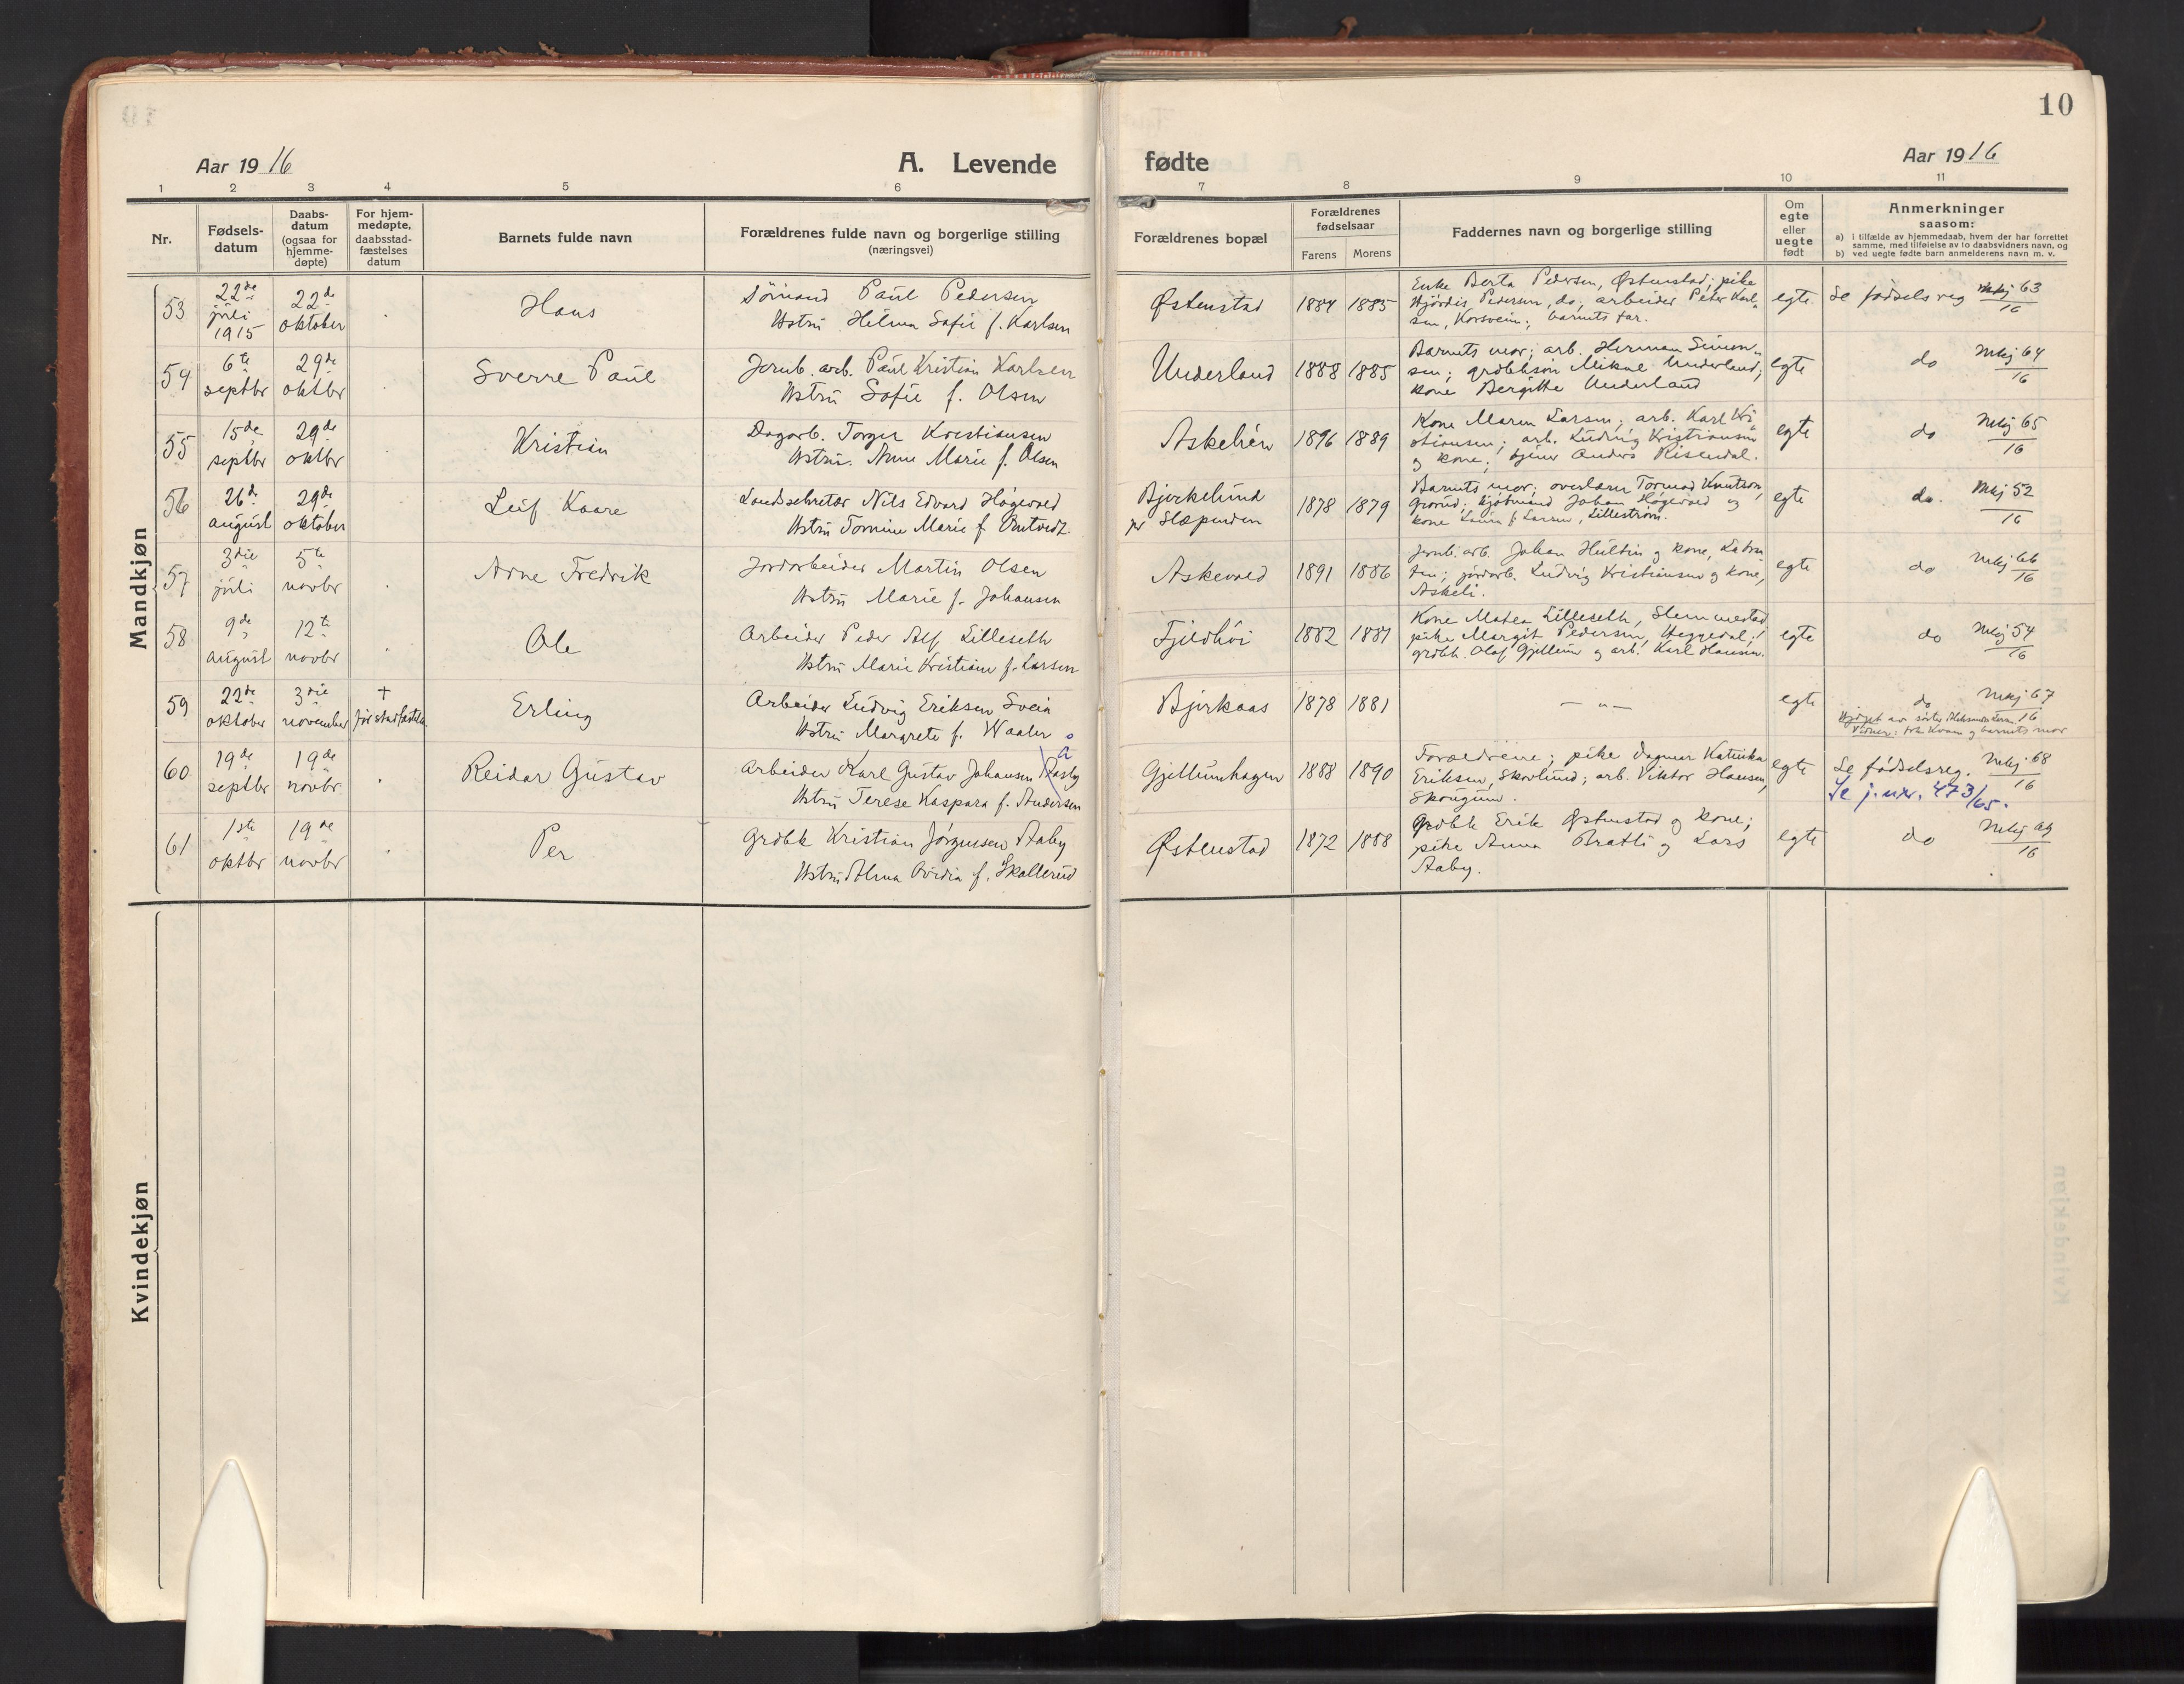 10
Aar 1916
A. Levende
fødte
Aar 1916
1 2 3 4 5 6 7 8 9 10 11
Nr.
Fødsels-
datum
Daabs-
datum
(ogsaa for
hjemme-
døpte)
For hjem-
medøpte,
daabsstad-
fæstelses
datum
Barnets fulde navn
Forældrenes fulde navn og borgerlige stilling
(næringsvei)
Forældrenes bopæl
Forældrenes
fødselsaar
Farens Morens
Faddernes navn og borgerlige stilling
Om
egte
eller
uegte
født
Anmerkninger
saasom:
a) i tilfælde av hjemmedaab, hvem der har forrettet
samme, med tilføielse av to daabsvidners navn, og
b) ved uegte fødte barn anmelderens navn m. v.
Mandkjøn
53
22de
juli
1915
22de
oktober
Hans
Sømand Paul Pedersen
Hstru Helma Sofie f. Karlsen
Østenstad
1884 1885
Enke Berta Pedersen, Østenstad; pike
Hjördis Pedersen, do; arbeider Peter Karl-
sen, Korsvein; barnets far.
egte
Se fødselsreg Mkj 63/16
54
6te
septbr
29de
oktbr
Sverre Paul
Jernb. arb. Paul Kristian Karlsen
Hstru Sofie f. Olsen
Underland
1888 1885
Barnets mor; arb. Herman Simon-
sen; grdbbsön Mikal Underland;
kone Bergitte Underland
egte
do Mkj 64/16
55
15de
septbr
29de
oktbr
Kristian
Dagarb. Torger Kristiansen
Hstru. Anne Marie f. Olsen
Askehén
1896 1889
Kone Maren Larsen; arb. Karl Kri-
stiansen; arb. Ludvig Kristiansen
og kone; tjener Anders Risendal.
egte
do Mkj 65/16
56
26de
august
29de
oktober
Leif Kaare
Landssekretær Nils Edvard Høgevold
Hstru Tomine Marie f.
Bjerkelund
pr Slæpenden
1878 1879
Barnets mor; overlærer Tormod Knutson,
Grorud; Johan Høgevold og
kone Laura f. Larsen, Lillestrøm.
egte
do. Mkj 52/16
57
3die
juli
5te
novbr
Arne Fredrik
Jordarbeider Martin Olsen
Hstru Marie f. Johansen
Askevold
1891 1886
Jernb. arb. Johan Hultin og kone,
jordarb. Ludvig Kristiansen og kone,
Askeli.
egte
do Mkj 66/16
58
9de
august
12te
novbr
Ole
Arbeider Peder Alf Lilleseth
Hstru Marie Kristiane f. Larsen
Fjeldhöi
1882 1881
Kone Matea Lilleseth, Slemmestad
pike Margit Pedersen, Heggedal;
grdbb. Olaf Gjellum og arb. Karl Hansen.
egte
do Mkj 54/16
59
22de
oktober
3die
november
†
før stadfæstelse
Erling
Arbeider Ludvig Eriksen Svein
Hstru Margrete f. Waaler
Bjerkaas
1878 1881
— „ —
egte
do Mkj 67/16
Hjdøpt av søster
Vidner: og barnets mor
60
19de
septbr
19de
novbr
Reidar Gustav
Arbeider Karl Gustav Johansen Aasby
Hstru Terese Kaspara f. Andersen
Gjellumhagen
1888 1890
Forældrene; pike Dagmar Katinka
Eriksen, Skovlund; arb. Viktor Hansen,
Skougum.
egte
Se fødselsreg. Mkj 68/16
Se j.nr. 473/65.
61
1ste
oktbr
19de
novbr
Per
Grdbk Kristian Jörgensen Aaby
Hstru Alma Ovidia f. Skallerud
Østenstad
1872 1888
Grdbk Erik Østenstad og kone;
pike Anna Bratli og Lars
Aaby.
egte
do Mkj 69/16
Kvindekjøn